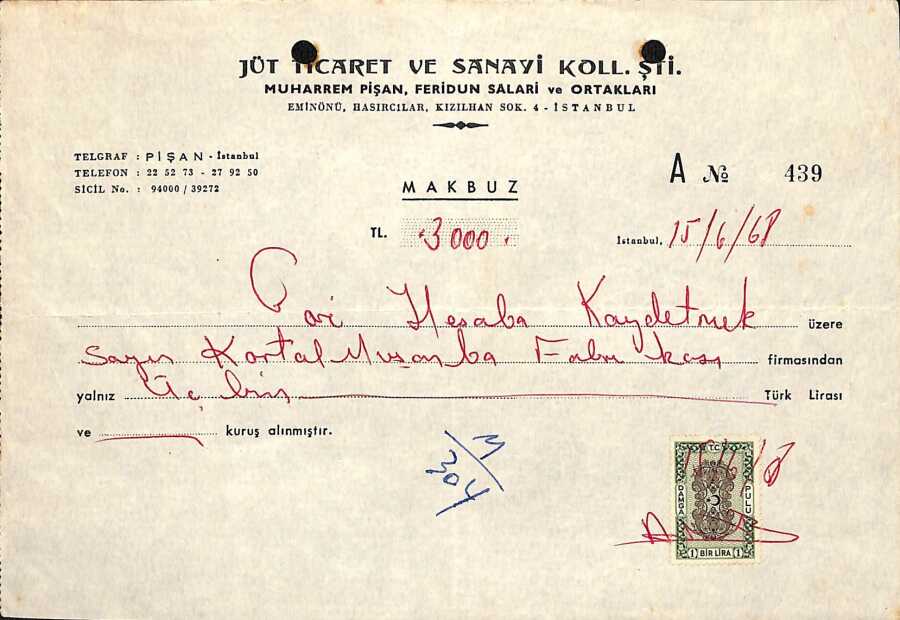 JÜT TİCARET VE SANAYİ KOLL. ŞTİ.
MUHARREM PİŞAN, FERİDUN SALARİ ve ORTAKLARI
EMİNÖNÜ, HASIRCILAR, KIZILHAN SOK. 4 - İSTANBUL
TELGRAF : PİŞAN - İstanbul
TELEFON : 22 52 73 - 27 92 50
SİCİL No. : 94000 / 39272
A № 439
MAKBUZ
TL. 3000.
İstanbul, 15/6/68
Cari Hesaba Kaydetmek üzere
Sayın Kartal Muşamba Fabrikası firmasından
yalnız Üç bin Türk Lirası
ve kuruş alınmıştır.
M/304
TC
DAMGA PULU
1 BİR LİRA 1